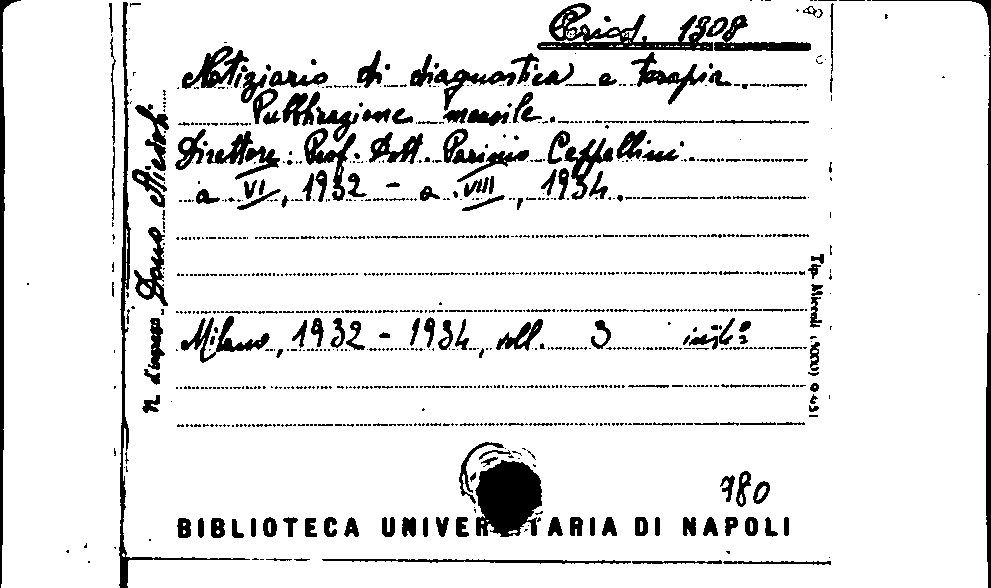 Period. 1908
Notiziario di diagnostica e terapia.
Pubblicazione mensile.
Direttore: Prof. Dott. Ceppellini.
a. VI, 1932 - a. VIII, 1934.
Milano, 1932 - 1934, voll. 3 in 8º
N. d'ingresso Dono
Tip. Miccoli
780
BIBLIOTECA UNIVERSITARIA DI NAPOLI